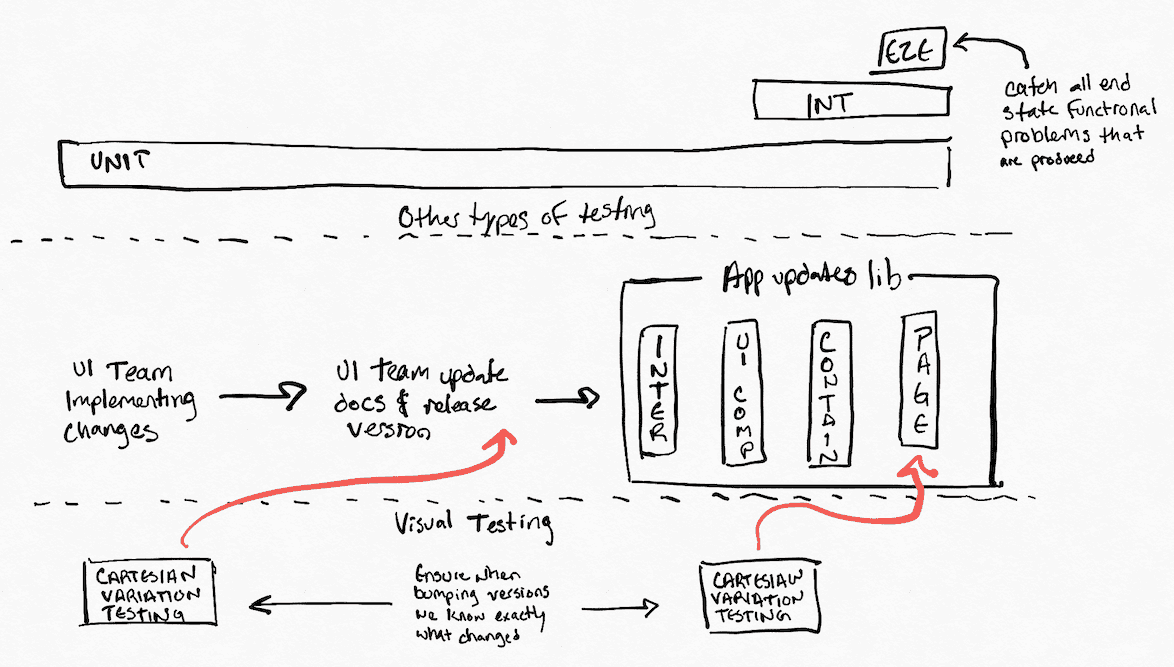 E2E
catch all end
state functional
problems that
are produced
INT
UNIT
Other types of testing
App updates lib
UI Team
Implementing
changes
UI team update
docs & release
version
INTER
UI COMP
CONTAIN
PAGE
Visual Testing
CARTESIAN
VARIATION
TESTING
Ensure when
bumping versions
we know exactly
what changed
CARTESIAN
VARIATION
TESTING